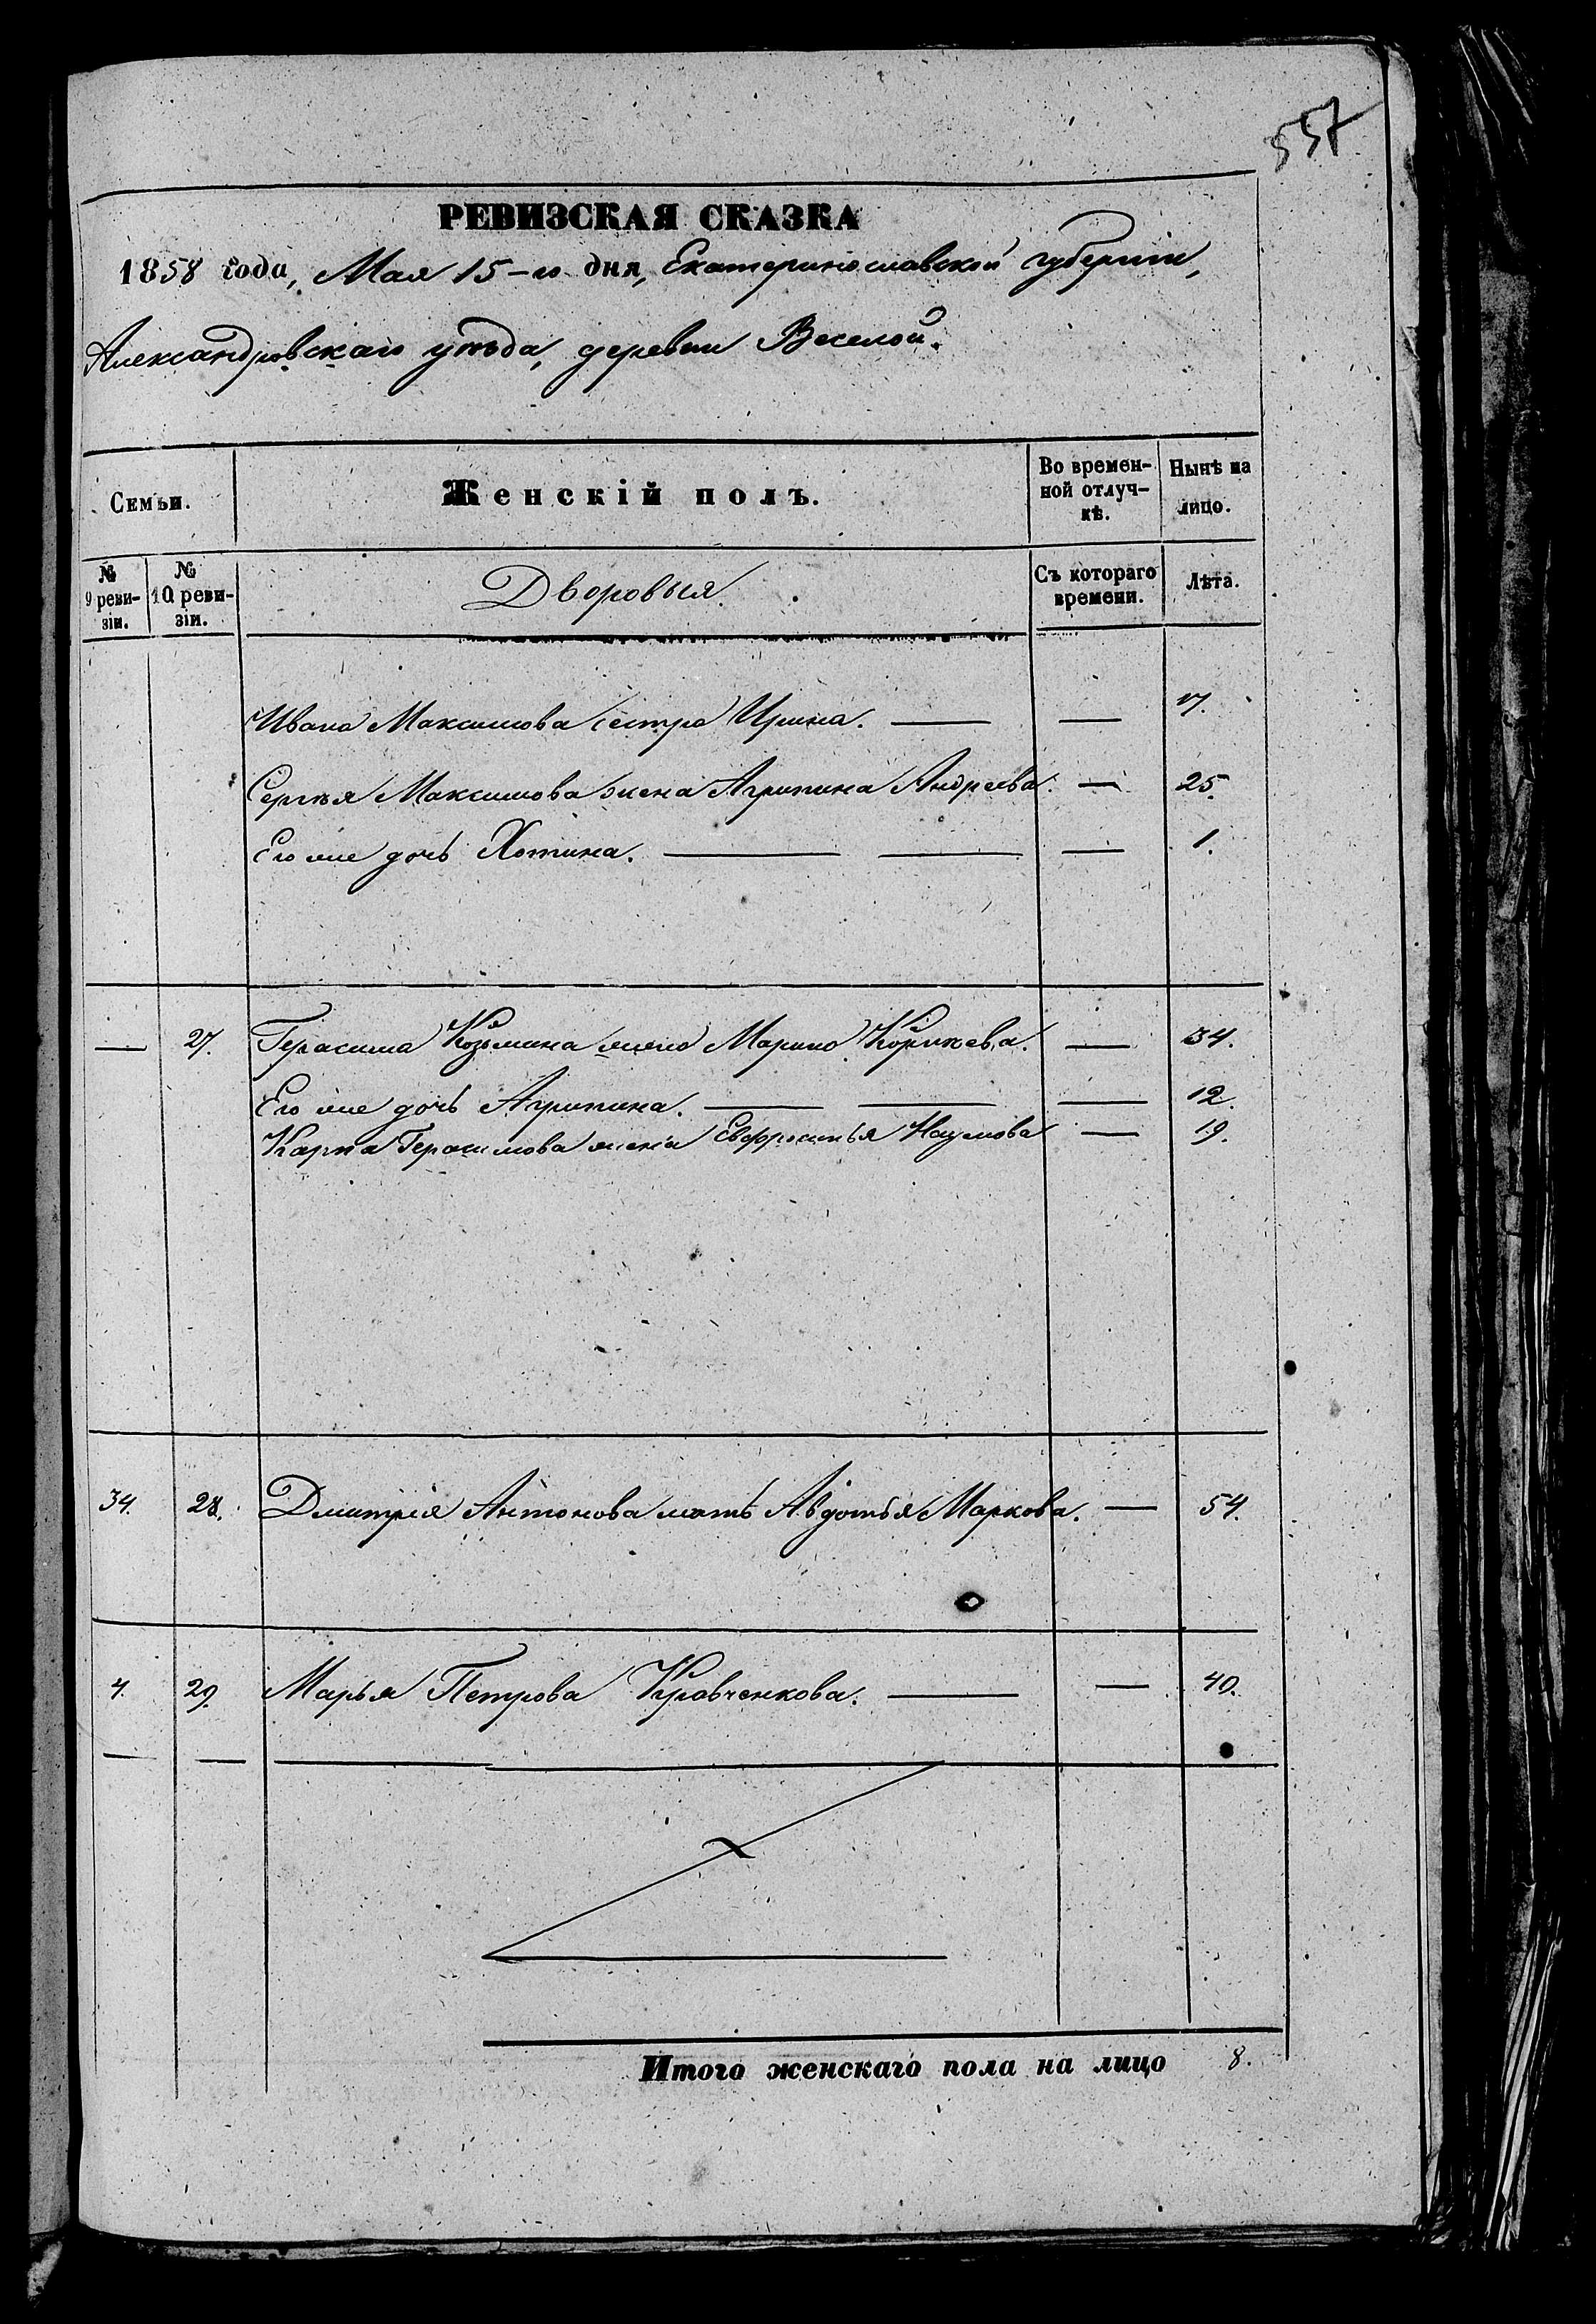 557
РЕВИЗСКАЯ СКАЗКА
1858 года, Мая 15-го дня, Екатеринославской губернии,
Александровскаго уѣзда, деревни Веселой.
Семьи.
Женскій полъ.
Во времен-
ной отлуч-
кѣ.
Нынѣ на
лицо.
№
9 реви-
зіи.
№
10 реви-
зіи.
Дворовыя.
Съ котораго
времени.
Лѣта.
Ивана Максимова сестра Ирина. — — 17.
Сергѣя Максимова жена Агрипина Андреева. — 25.
Его же дочь Хотина. — — — 1.
— 27. Герасима Козьмина жена Марина — 34.
Его же дочь Агрипина. — — — 12.
Карпа Герасимова жена Евфросинья Наумова — 19.
34. 28. Дмитрія Антонова мать Авдотья Маркова. — 54.
4. 29. Марья Петрова Кравченкова. — — 40.
Итого женскаго пола на лицо 8.